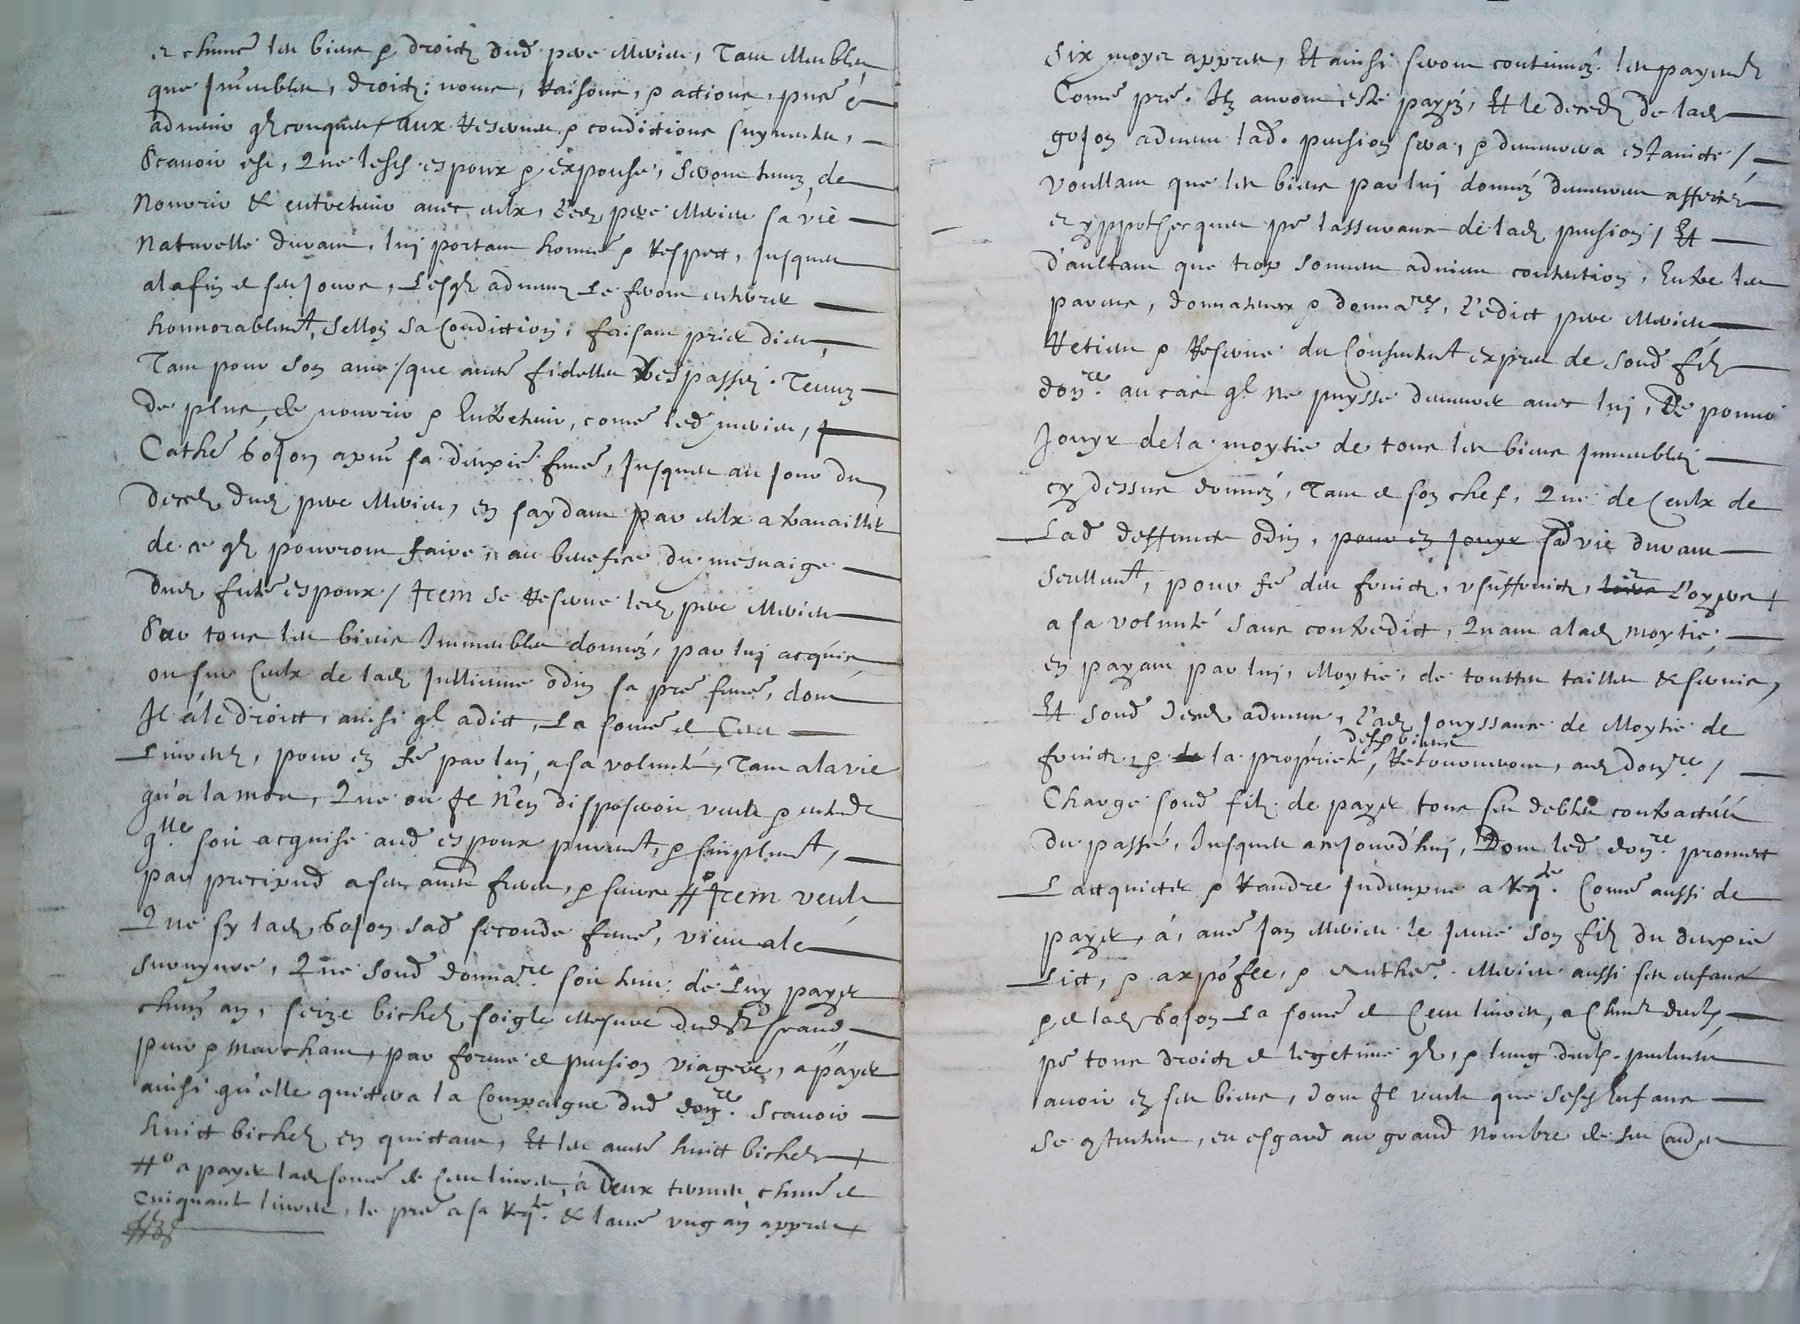 et chunc̃ les biens & droictz dud̃ pere Mvieu, Tant Meubles
que Im̃eubles, droictz, noms, Raisons, & actions, pñs &
advenir qlconques, aux Reserves & conditions suyvantes,
Scavoir est, Que lesd espoux & expouse, seront tenuz de
Nourrir & entretenir avec eulx, led pere Mvieu sa vie
Naturelle durant, luy portant honneur & Respect, Jusques
a la fin de ses Jours, Lesql advenuz Le feront enterrer
honnorablemt, sellon sa Condiction, faisant prier dieu,
Tant pour son ame / que autres fidelles trespassez. Tenuz
de plus, de nourrir & Entretenir, come led Mvieu,
Cathe Bojon apñt sa deuxie feme, Jusques au Jour du
decedz dud pere Mvieu, en saydant par eulx a travailler
de ce ql pourront faire, au benefice du mesnaige
dud futrs espoux / Item se Reserve led pere Mvieu
Sur tous les biens Immeubles donnéz, par luy acquis
ou sur Ceulx de lad Jullienne odin sa pre feme, dont
Il á le droict, ainsi ql a dict, La some de Cent
Livres, pour en fe par luy, a sa volunté, Tant a la vie
qu'a la mort, Que ou Il n'en disposeroit veult & entend
qlle soit acquise aud espoux purement, & simplemt,
par precipud a ses autres freres, & seurs #° Item veult
Que sy lad Bojon sad seconde feme, vient a le
survyvre, Que soud donnare soit tenu de Luy payer
chun an, seize bichetz soigle Mesure dud St
pur & Marchant, par forme de pension viagere, a payer
ainsi qu'elle quittera la Compaigne dud donre. Scavoir
huict bichetz en quittant, Et les autres huict bichetz
#° a payer lad some de Cent livres, á Deux termes, chune de
cinquante livres, le pre a sa Reqte. & lautre ung an appres
Six moys appres, Et ainsi seront continuéz les payemtz
Come pre. Ilz auront esté payéz, Et le decedz de lad
Bojon advenu lad. pension sera, & demeurera estaincte /
voullant que les biens par luy donnéz demeurent affectéz
et yppothecquéz pr lassurance de lad pension / Et
d'aultant que trop souvent advient contention, Entre les
parens, donnateurs & donnares, Ledict pere Mvieu
Retient & Reserve du Consentemt expres de soud filz
donre. au cas ql ne puysse demeurer avec luy, De pouvoir
Jouyr de la moytie de tous les biens Immeubles
cy dessus donnéz, Tant de son chef, Que de Ceulx de
Lad deffuncte odin, pour en Jouyr sad vie durant
Seullemt, pour fe des fruictz, usuffruict,
a sa volunté sans contredict, Quant a lad moytie
en payant par luy, Moytie, de touttes tailles & servis,
Et soud decedz advenu, Lad Jouyssance de Moytie de
desd biens
fruictz, & la propriété, Retourneront, aud donre, /
Charge soud filz de payer tous ses debtes contractéés
du passé, Jusques a ce jourd'huy, Dont led donre promect
Lacquicter & Randre Indempne a Reqte. Come aussi de
payer, á, aue Jan Mvieu le Jeune son filz du deuxie
Lict, & a & Anthe. Mviéu aussi ses enfans
& de lad Bojon La some de Cent livres, a Chun deulx
pr tous droictz de legetime ql, & lung deulx. pretendre
avoir en ses biens, dont Il veult que sesd Enfans
se contentent, eu esgard au grand Nombre de ses